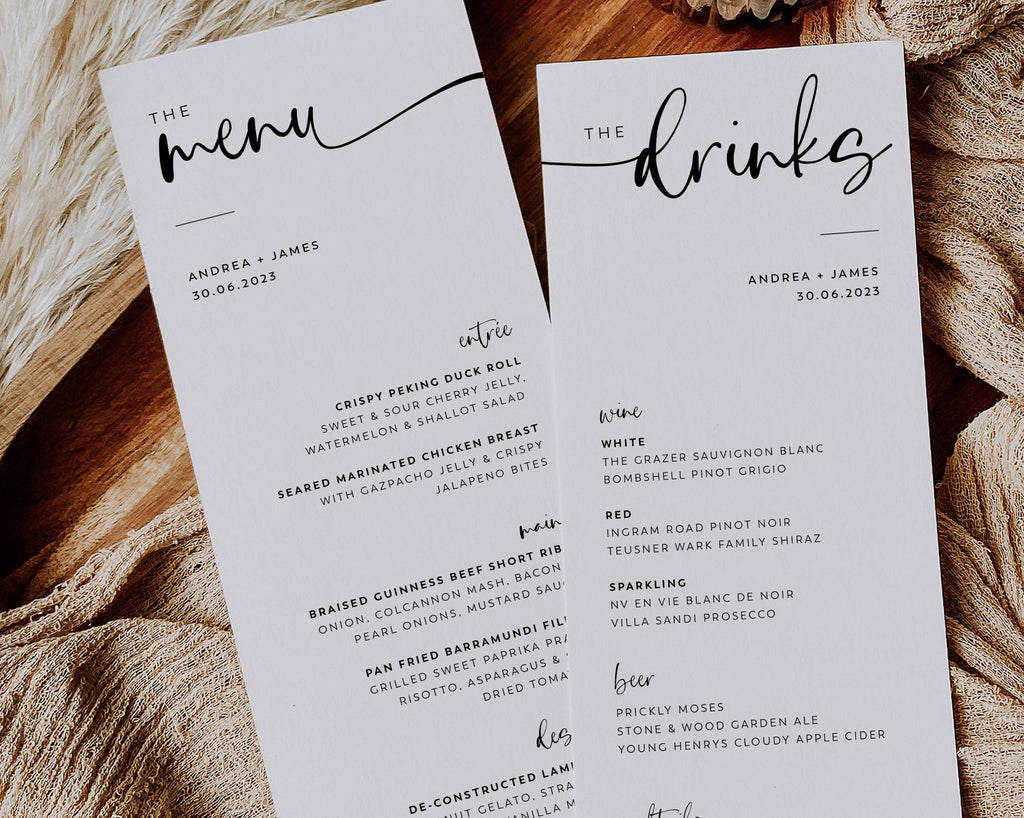 THE
menu
ANDREA + JAMES
30.06.2023
entrée
CRISPY PEKING DUCK ROLL
SWEET & SOUR CHERRY JELLY,
WATERMELON & SHALLOT SALAD
SEARED MARINATED CHICKEN BREAST
WITH GAZPACHO JELLY & CRISPY
JALAPENO BITES
main
BRAISED GUINNESS BEEF SHORT RIB
ONION, COLCANNON MASH, BACON
PEARL ONIONS, MUSTARD
PAN FRIED BARRAMUNDI
GRILLED SWEET PAPRIKA
RISOTTO, ASPARAGUS &
DRIED
DE-CONSTRUCTED
GELATO,
THE
drinks
ANDREA + JAMES
30.06.2023
wine
WHITE
THE GRAZER SAUVIGNON BLANC
BOMBSHELL PINOT GRIGIO
RED
INGRAM ROAD PINOT NOIR
TEUSNER WARK FAMILY SHIRAZ
SPARKLING
NV EN VIE BLANC DE NOIR
VILLA SANDI PROSECCO
beer
PRICKLY MOSES
STONE & WOOD GARDEN ALE
YOUNG HENRYS CLOUDY APPLE CIDER